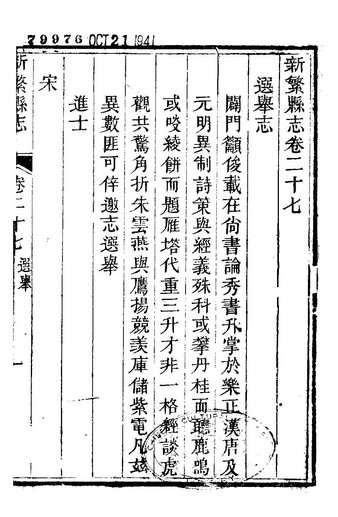 79976 OCT 21 1941
新繁縣志卷二十七
選舉志
闢門籲俊載在尙書論秀書升掌於樂正漢唐及
元明異制詩策與經義殊科或攀丹桂而聽鹿鳴
或咬綾餅而題雁塔代重三升才非一格經談虎
觀共驚角折朱雲燕與鷹揚競羡庫儲紫電凡茲
異數匪可倖邀志選舉
進士
宋
新繁縣志 卷二十七 選舉 一